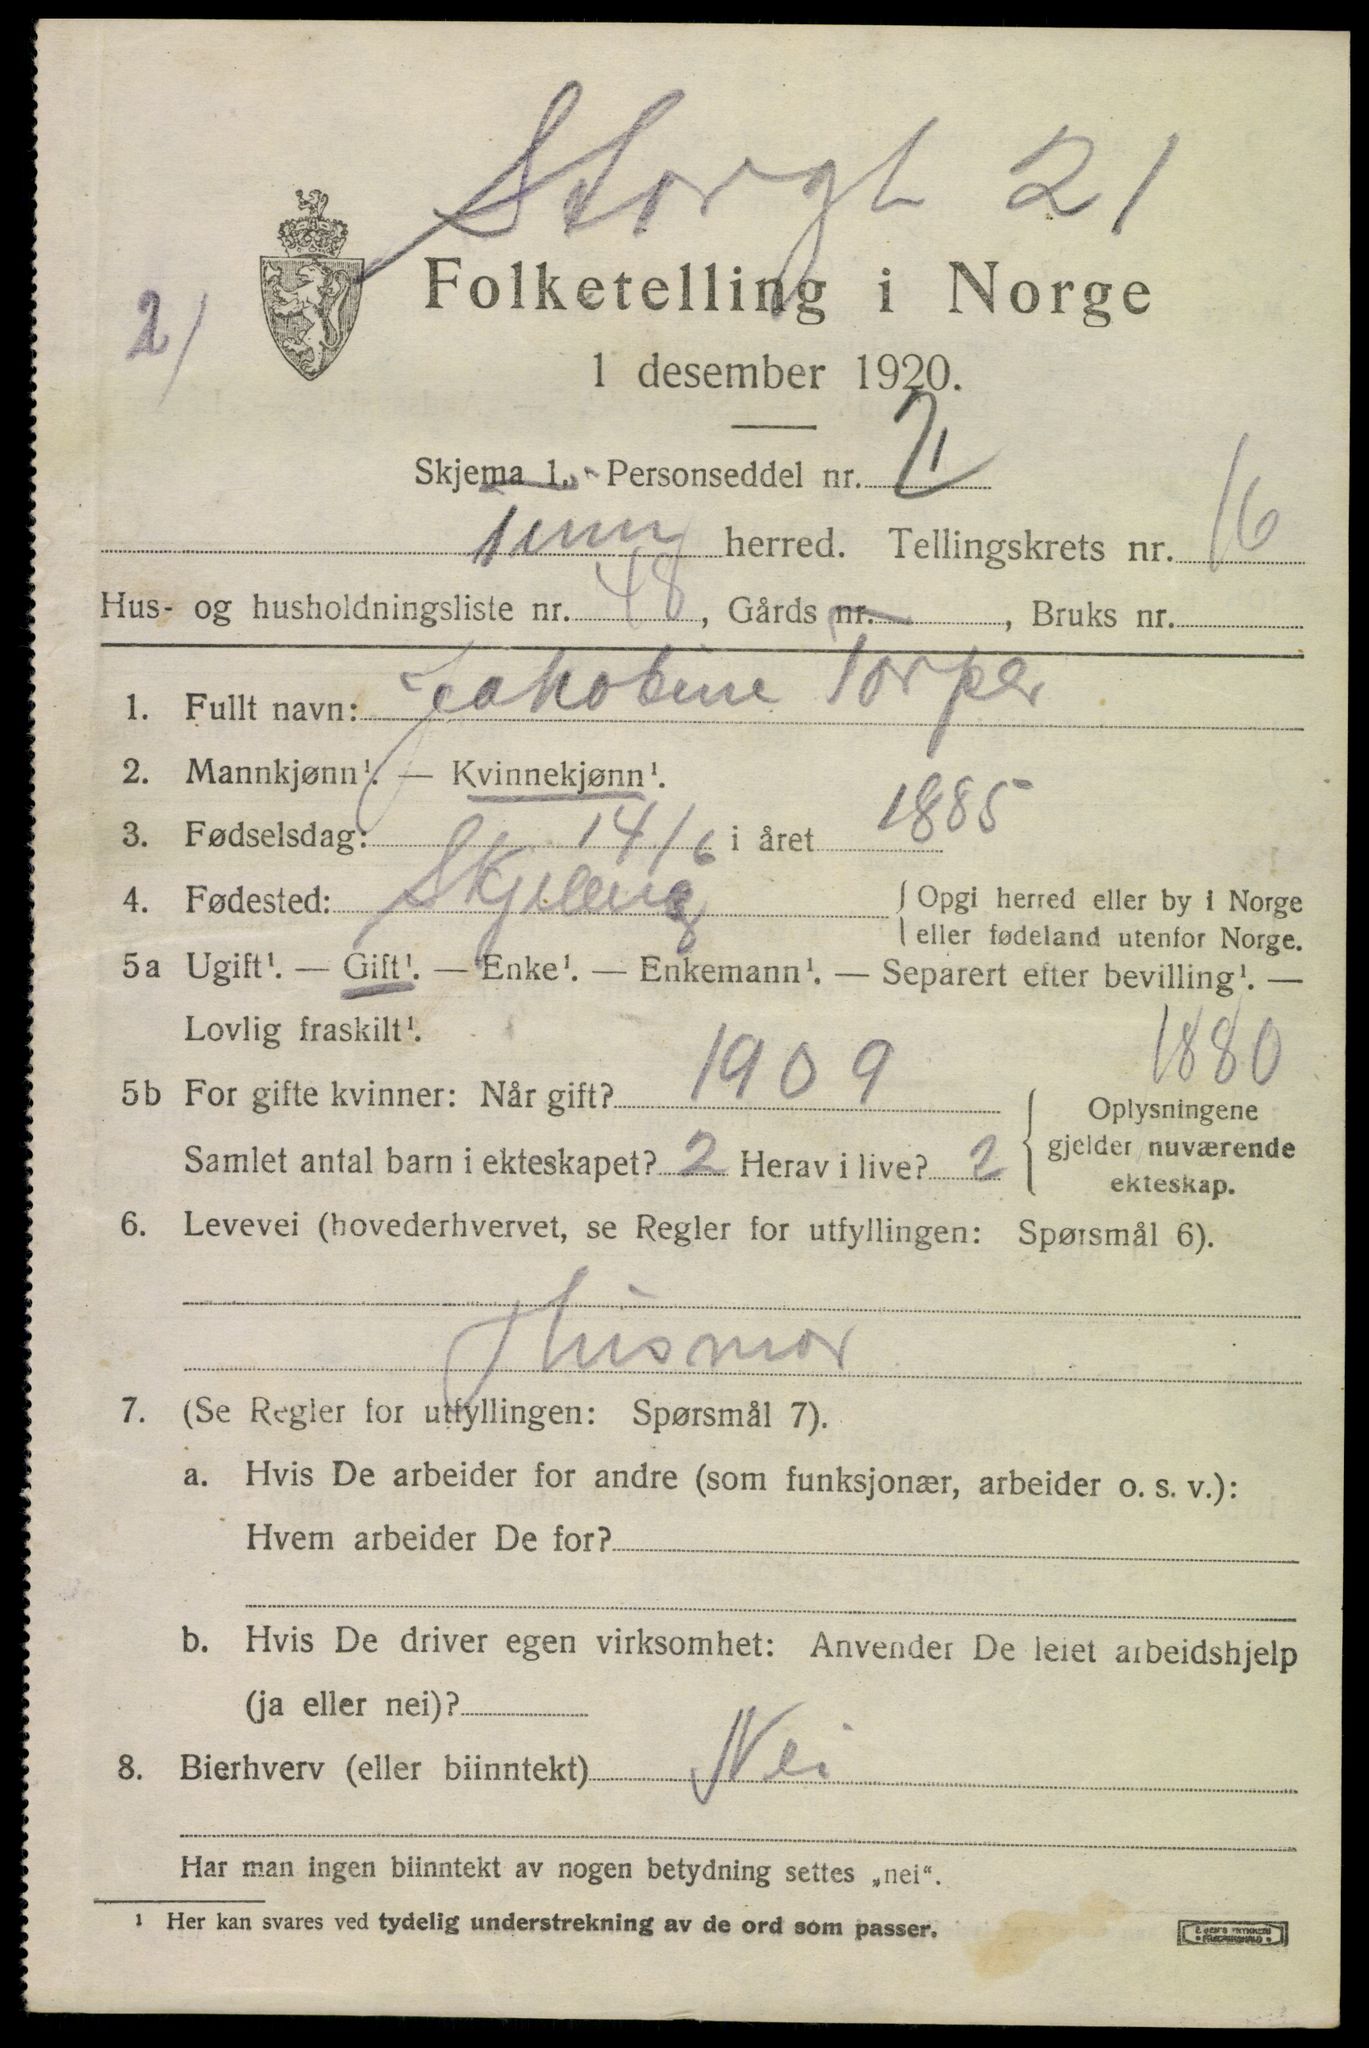 Storgt 21
21
Folketelling i Norge
1 desember 1920.
Skjema 1. Personseddel nr. 2
Tinn herred. Tellingskrets nr. 16
Hus- og husholdningsliste nr. 48, Gårds nr. , Bruks nr.
1. Fullt navn: Jakobine Torper
2. Mannkjønn¹. — Kvinnekjønn¹.
3. Fødselsdag: 14/6 i året 1885
4. Fødested: { Opgi herred eller by i Norge
eller fødeland utenfor Norge.
5a Ugift¹. — Gift¹. — Enke¹. — Enkemann¹. — Separert efter bevilling¹. —
Lovlig fraskilt¹.
1880
5b For gifte kvinner: Når gift? 1909
Samlet antal barn i ekteskapet? 2 Herav i live? 2
Oplysningene
gjelder nuværende
ekteskap.
6. Levevei (hovederhvervet, se Regler for utfyllingen: Spørsmål 6).
Husmor
7. (Se Regler for utfyllingen: Spørsmål 7).
a. Hvis De arbeider for andre (som funksjonær, arbeider o. s. v.):
Hvem arbeider De for?
b. Hvis De driver egen virksomhet: Anvender De leiet arbeidshjelp
(ja eller nei)?
8. Bierhverv (eller biinntekt) Nei
Har man ingen biinntekt av nogen betydning settes „nei“.
¹ Her kan svares ved tydelig understrekning av de ord som passer.